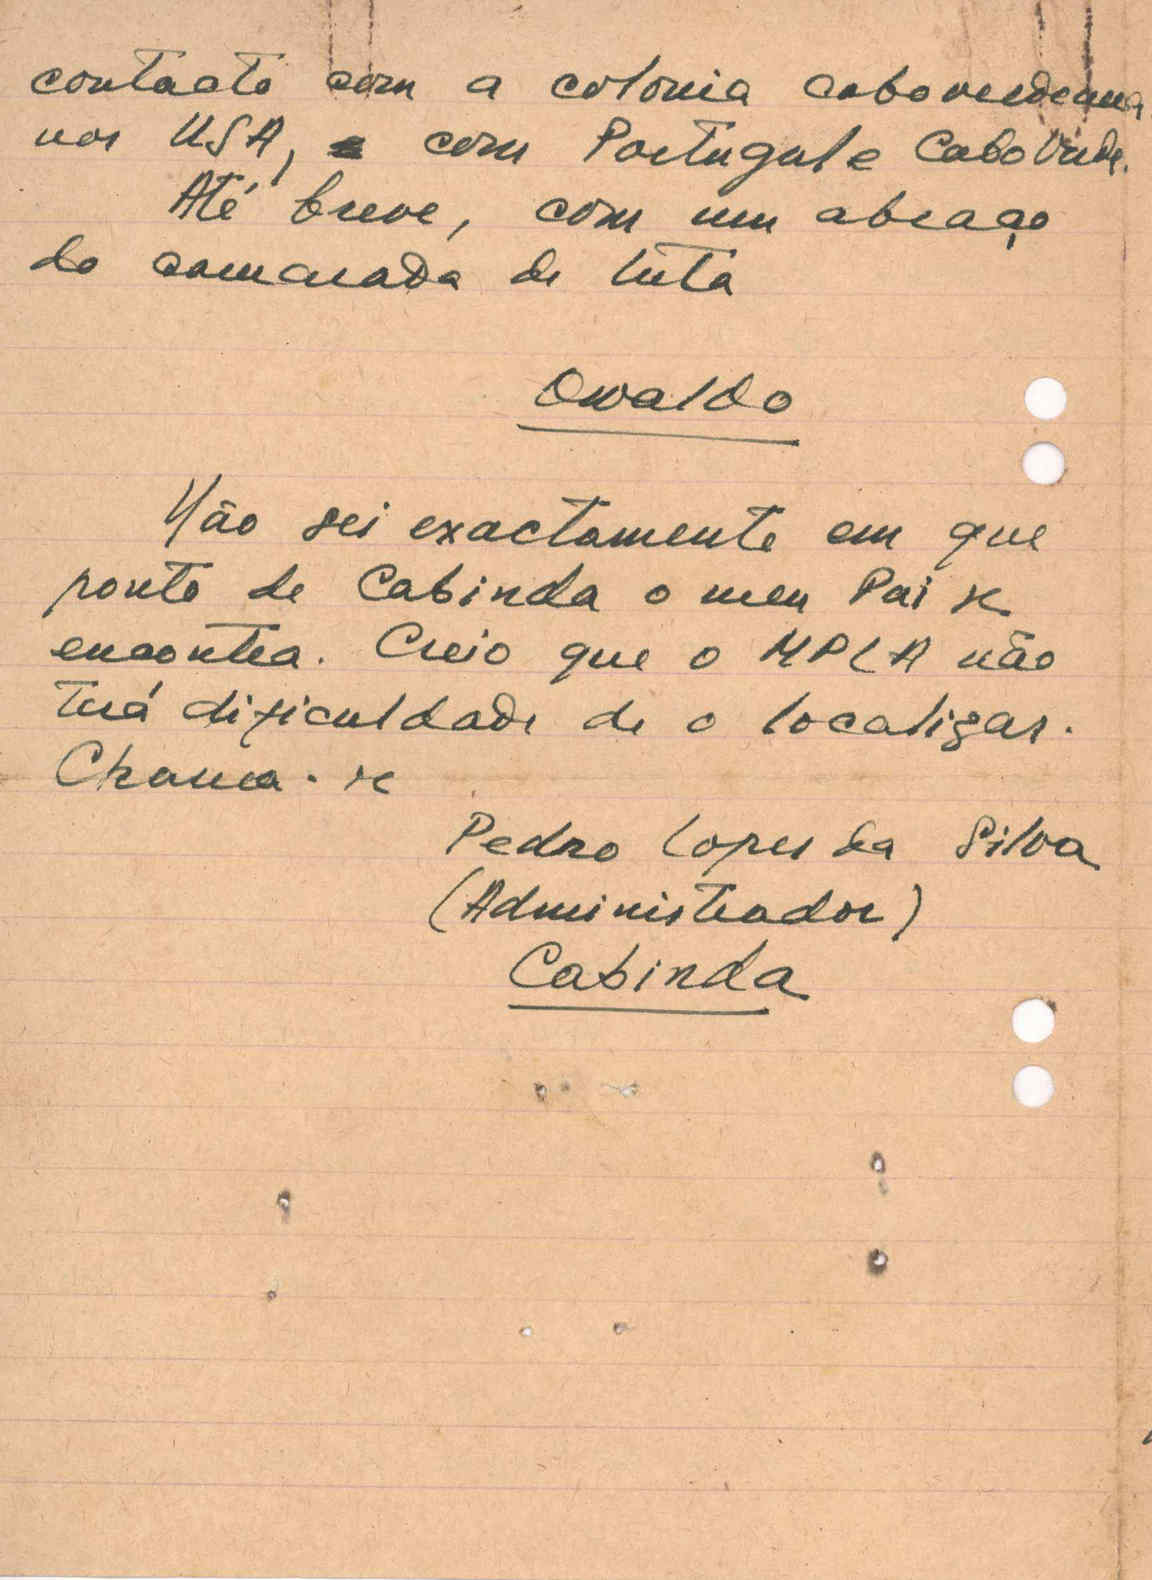 contacto com a colonia caboverdeana
nos USA, e com Portugal e Cabo Verde.
Até breve, com um abraço
do camarada de luta
Oswaldo
Não sei exactamente em que
ponto de Cabinda o meu Pai se
encontra. Creio que o MPLA não
terá dificuldade de o localizar.
Chama-se
Pedro Lopes da Silva
(Administrador)
Cabinda